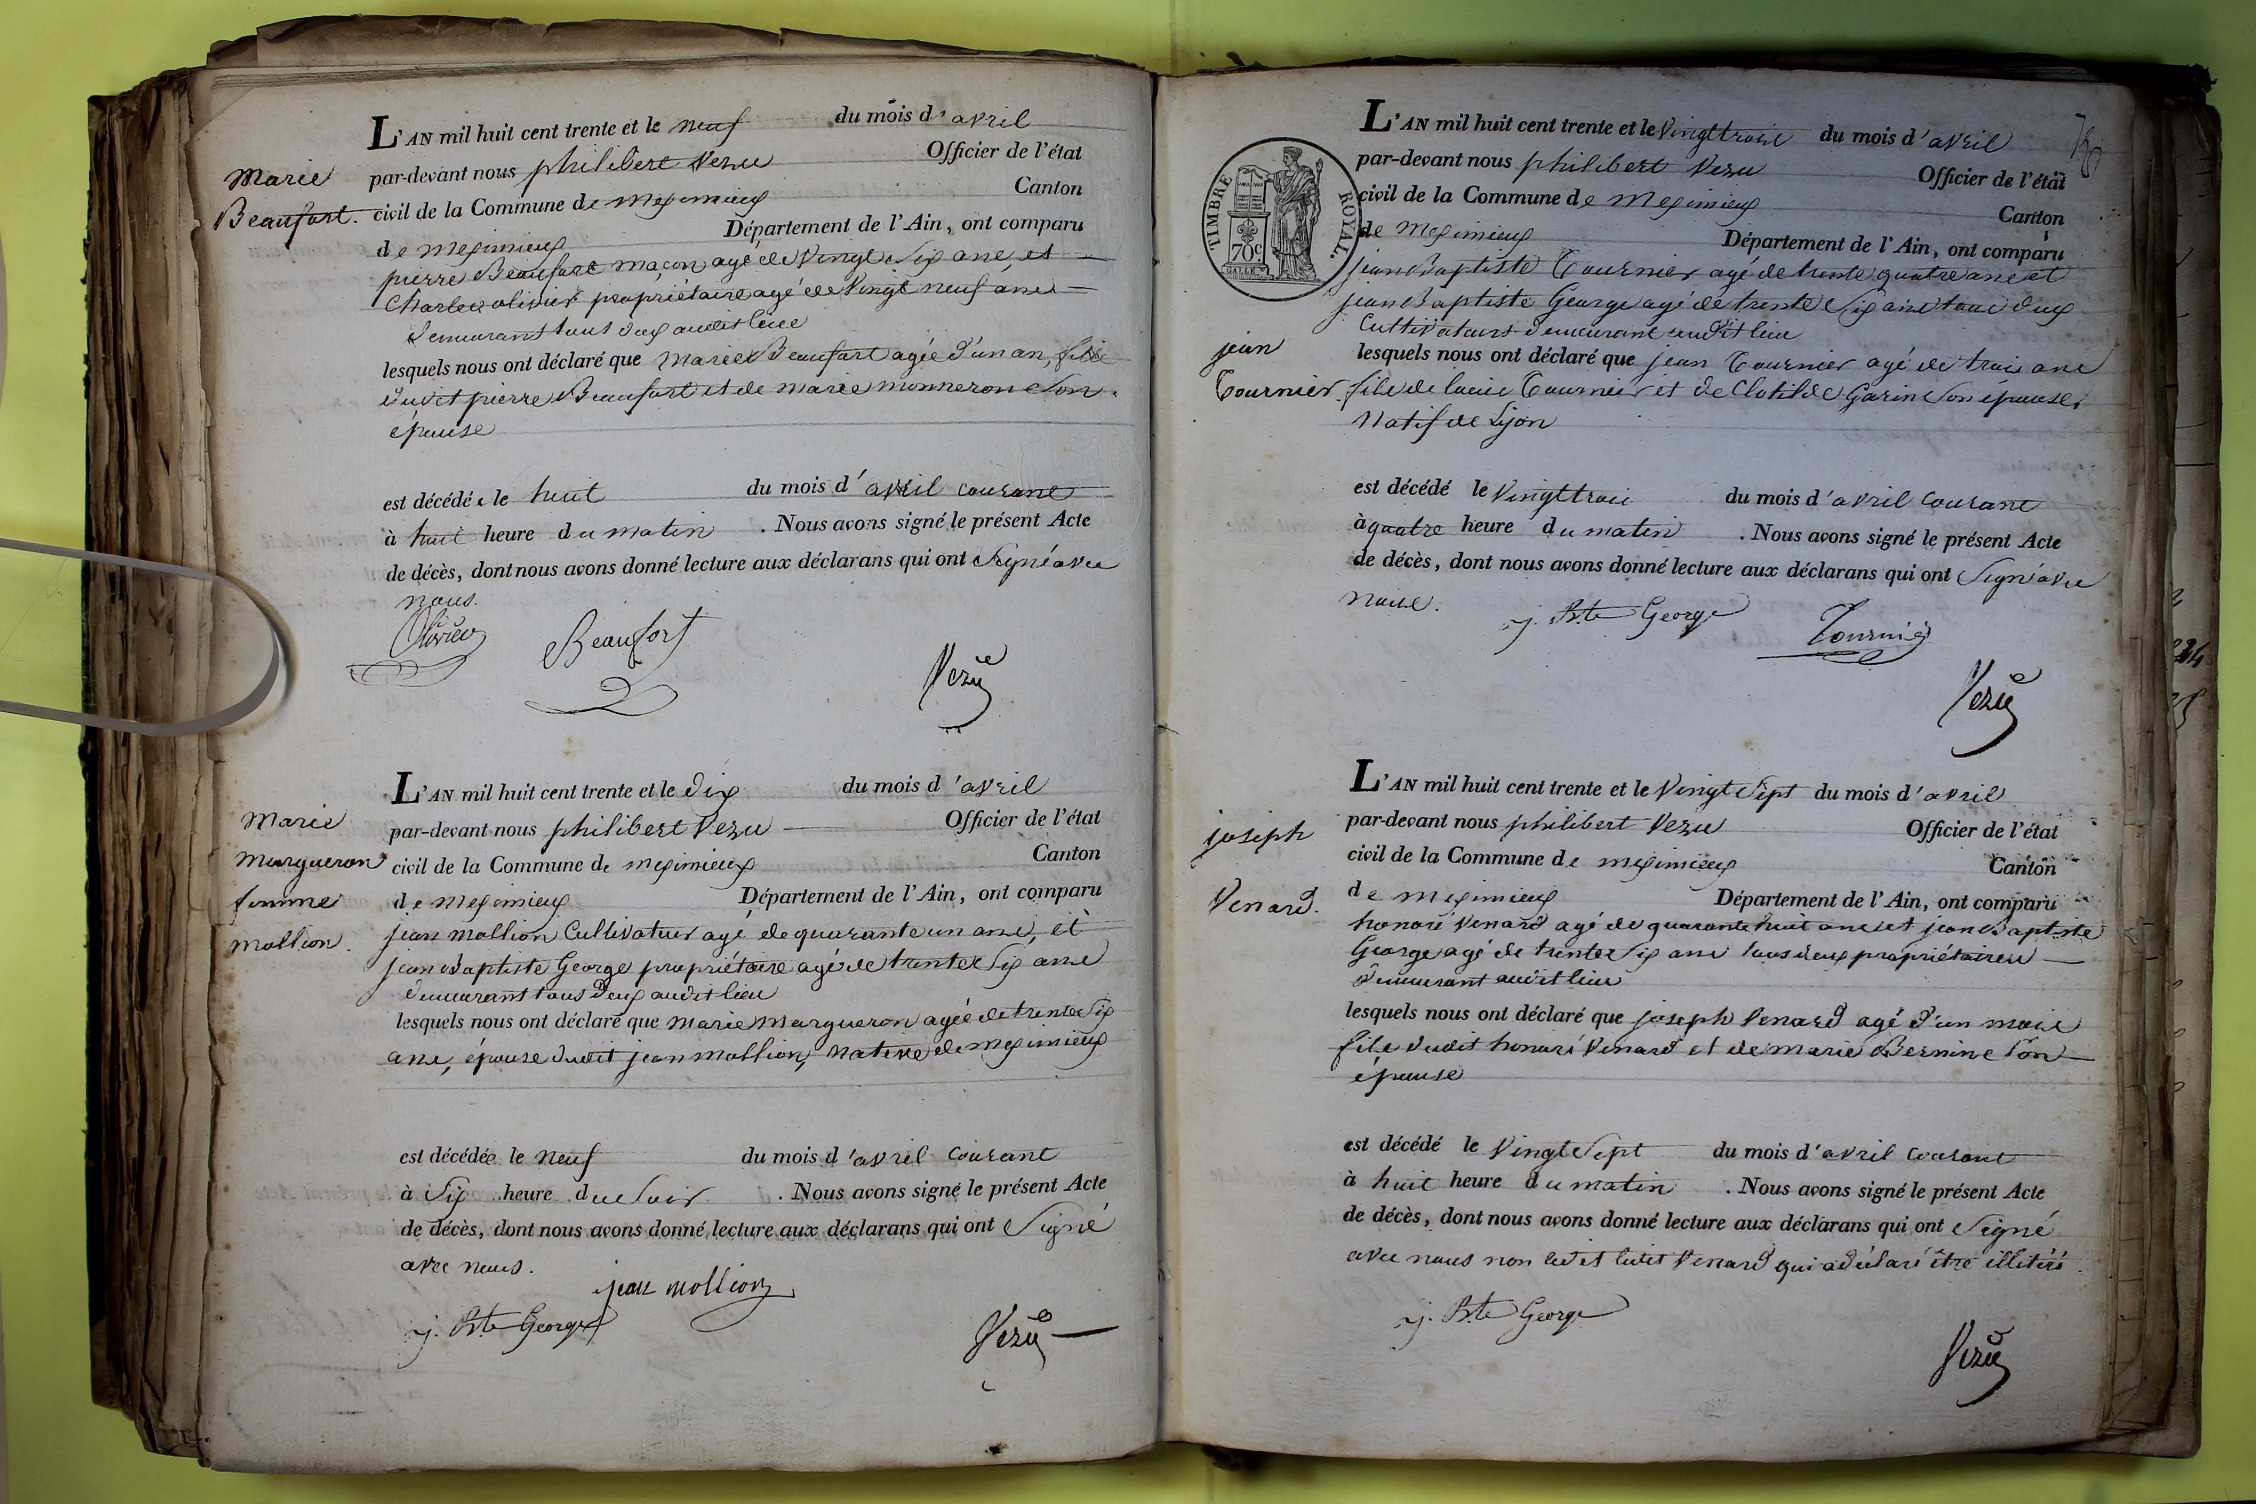 Marie
Beaufort.
L'AN mil huit cent trente et le neuf du mois d'avril
par-devant nous philibert Vezu Officier de l'état
civil de la Commune de Meximieux Canton
de Meximieux Département de l'Ain, ont comparu
pierre Beaufort maçon agé de Vingt Six ans, et
Charles olivier propriétaire agé de Vingt neuf ans
demeurant tous deux audit lieu
lesquels nous ont déclaré que Marie Beaufort agée d'un an, fille
dudit pierre Beaufort et de marie monneron Son
épouse
est décédée le huit du mois d'avril courant
à huit heure du matin . Nous avons signé le présent Acte
de décès, dont nous avons donné lecture aux déclarans qui ont Signé avec
nous.
Olivier Beaufort Vezu
Marie
Margueron
femme
Mollion.
L'AN mil huit cent trente et le dix du mois d'avril
par-devant nous philibert Vezu Officier de l'état
civil de la Commune de meximieux Canton
de Meximieux Département de l'Ain, ont comparu
jean mollion Cultivateur agé de quarante un ans, et
jean Baptiste George propriétaire agé de trente Six ans
demeurant tous deux audit lieu
lesquels nous ont déclaré que Marie Margueron agée de trente Six
ans, épouse dudit jean mollion, Native de Meximieux
est décédée le neuf du mois d'avril courant
à Six heure du Soir . Nous avons signé le présent Acte
de décès, dont nous avons donné lecture aux déclarans qui ont Signé
avec nous.
jean mollion
j. Bte George Vezu
78
TIMBRE ROYAL.
70c
jean
Tournier.
L'AN mil huit cent trente et le Vingt trois du mois d'avril
par-devant nous philibert Vezu Officier de l'état
civil de la Commune de Meximieux Canton
de Meximieux Département de l'Ain, ont comparu
jean Baptiste Tournier agé de trente quatre ans et
jean Baptiste George agé de trente Six ans tous deux
Cultivateurs demeurant audit lieu
lesquels nous ont déclaré que jean Tournier agé de trois ans
fils de louis Tournier et de Clotilde Garin Son épouse,
Natif de Lyon
est décédé le Vingt trois du mois d'avril courant
à quatre heure du matin . Nous avons signé le présent Acte
de décès, dont nous avons donné lecture aux déclarans qui ont Signé avec
nous.
j. Bte George Tournier
Vezu
joseph
Venard.
L'AN mil huit cent trente et le Vingt Sept du mois d'avril
par-devant nous philibert Vezu Officier de l'état
civil de la Commune de meximieux Canton
de Meximieux Département de l'Ain, ont comparu
honoré Venard agé de quarante huit ans et jean Baptiste
George agé de trente Six ans tous deux propriétaires
demeurant audit lieu
lesquels nous ont déclaré que joseph Venard agé d'un mois
fils dudit honoré Venard et de marie Bernin Son
épouse
est décédé le Vingt Sept du mois d'avril courant
à huit heure du matin . Nous avons signé le présent Acte
de décès, dont nous avons donné lecture aux déclarans qui ont Signé
avec nous non ledit Venard qui a déclaré être illitéré.
j. Bte George
Vezu